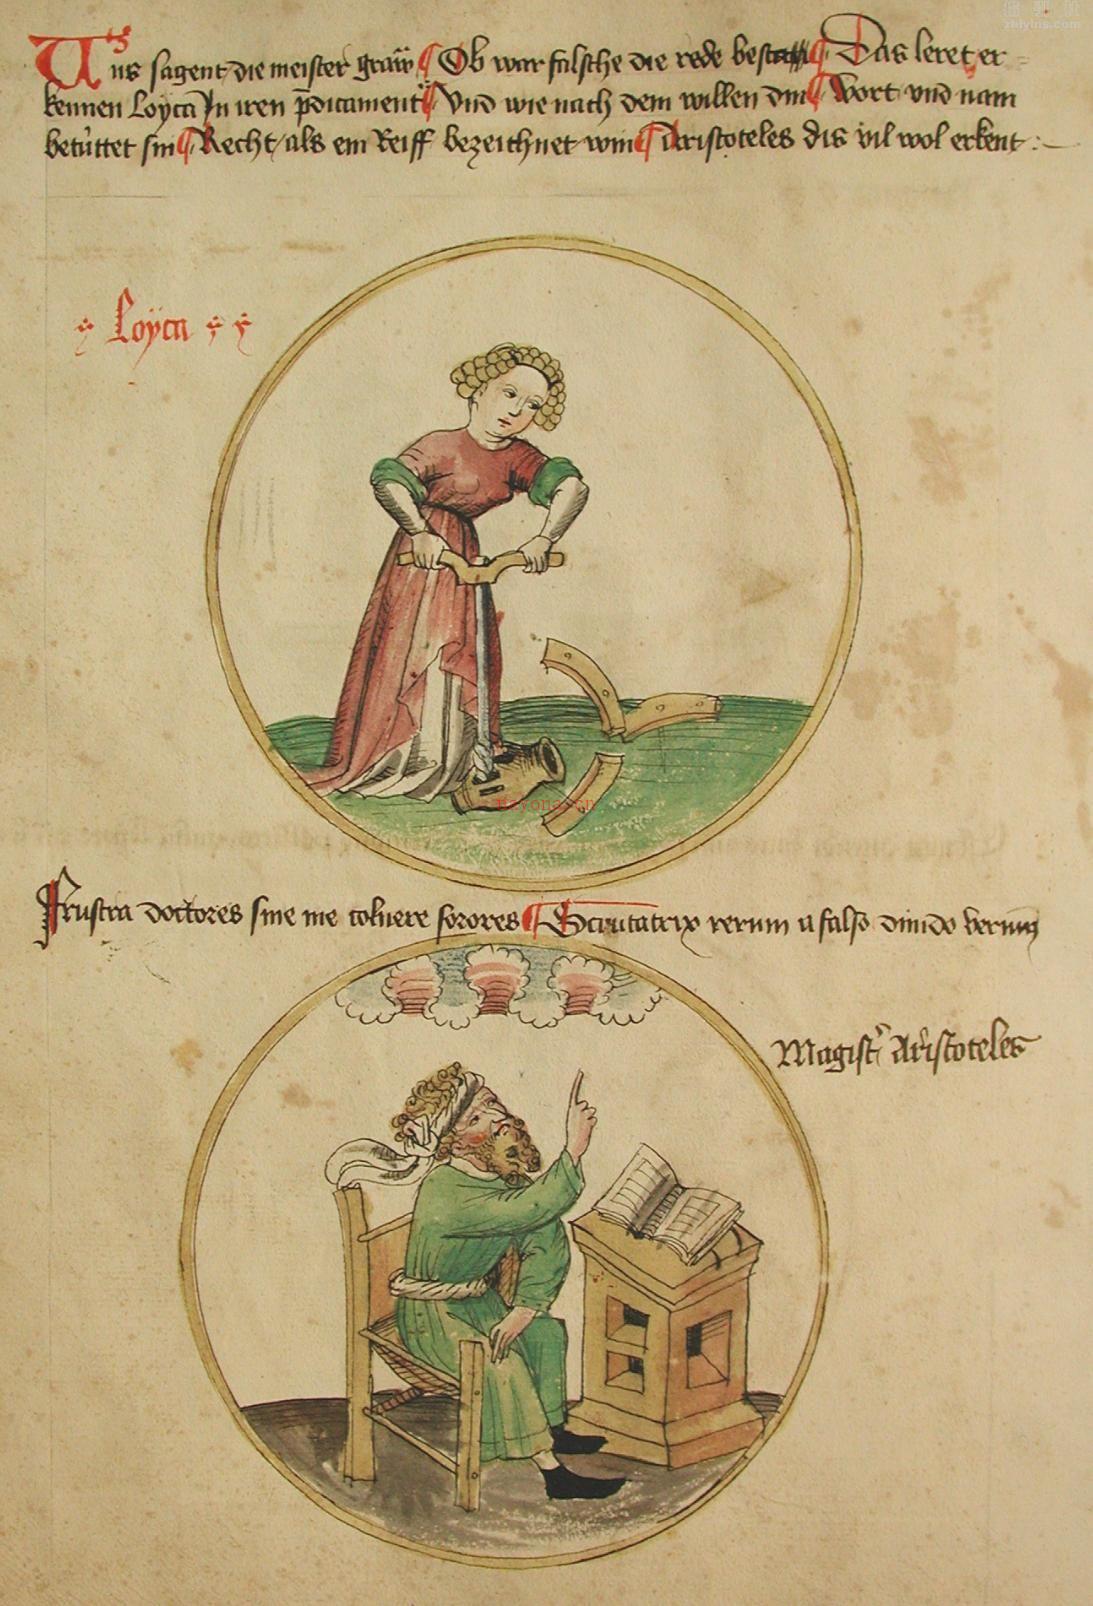 Uns sagent die meister graw ¶ Ob war falsche die rede best ¶ Das leret er
kennen Loyca In iren pdicament ¶ Vnd wie nach dem willen din ¶ Wort vnd nam
betuttet sin ¶ Recht als ein Reiff bezeichnet win ¶ Aristoteles dis vil wol erkent
Loyca
Frustra doctores sine me coluere sorores ¶ Scrutatrix rerum a falso diuido verum
Magistr Aristoteles
Mayona.cn
zhiyins.com